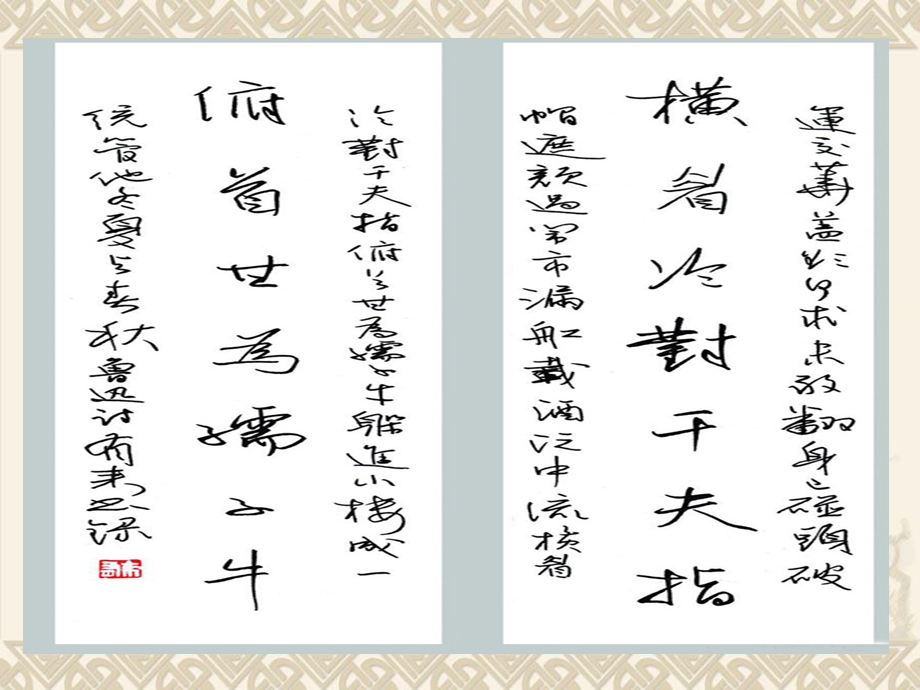 運交華蓋欲何求未敢翻身已碰頭破
橫眉冷對千夫指
帽遮顏過鬧市漏船載酒泛中流橫眉
冷對千夫指俯首甘為孺子牛躲進小樓成一
俯首甘為孺子牛
統管他冬夏与春秋魯迅詩錄